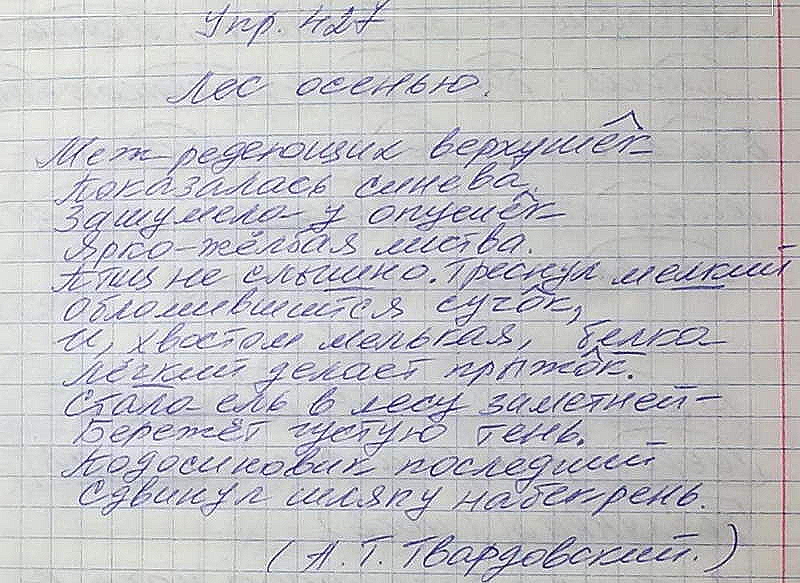 Упр. 427
Лес осенью.
Меж редеющих верхушек
Показалась синева.
Зашумела у опушек
Ярко-жёлтая листва.
Птиц не слышно. Треснул мелкий
Обломившийся сучок,
И, хвостом мелькая, белка
Лёгкий делает прыжок.
Стала ель в лесу заметней-
Бережёт густую тень.
Подосиновик последний
Сдвинул шляпу набекрень.
(А. Т. Твардовский.)